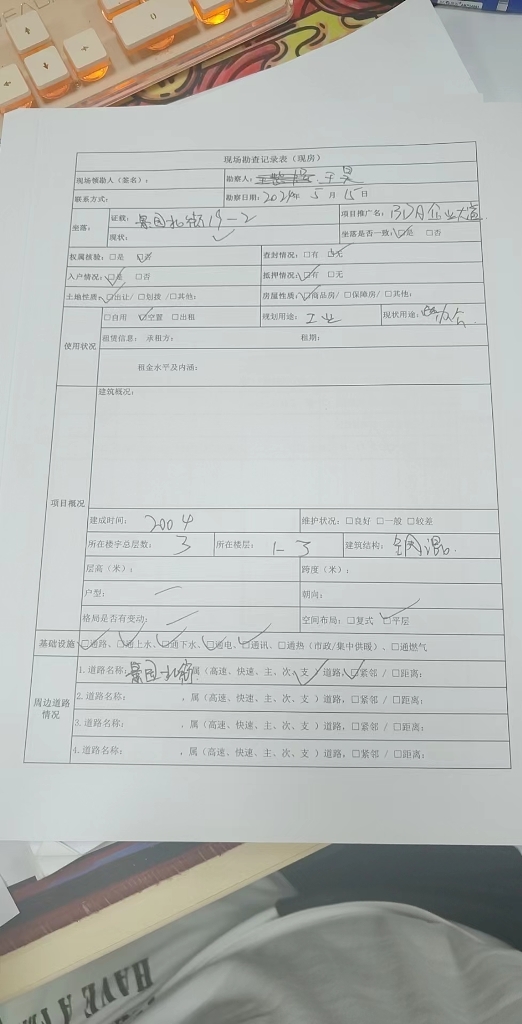 现场勘查记录表（现房）
现场领勘人（签名）： 勘察人：
联系方式： 勘察日期：2024年 5 月 15 日
坐落： 证载：景园北街19-2 项目推广名：BDA企业大道
现状： 坐落是否一致：☑是 □否
权属核验：□是 ☑否 查封情况：□有 ☑无
入户情况：☑是 □否 抵押情况：☑有 □无
土地性质：☑出让/ □划拨 /□其他： 房屋性质：☑商品房/ □保障房/ □其他：
使用状况 □自用 ☑空置 □出租 规划用途：工业 现状用途：办公
租赁信息：承租方： 租期：
租金水平及内涵：
项目概况 建筑概况：
建成时间：2004 维护状况：□良好 □一般 □较差
所在楼宇总层数：3 所在楼层：1-3 建筑结构：钢混
层高（米）： 跨度（米）：
户型： — 朝向：
格局是否有变动： — 空间布局：□复式 ☑平层
基础设施 ☑通路、☑通上水、☑通下水、☑通电、☑通讯、□通热（市政/集中供暖）、□通燃气
周边道路情况 1.道路名称：景园北街，属（高速、快速、主、次、支✓）道路，☑紧邻 / □距离：
2.道路名称： ，属（高速、快速、主、次、支 ）道路，□紧邻 / □距离：
3.道路名称： ，属（高速、快速、主、次、支 ）道路，□紧邻 / □距离：
4.道路名称： ，属（高速、快速、主、次、支 ）道路，□紧邻 / □距离：
HAVE A